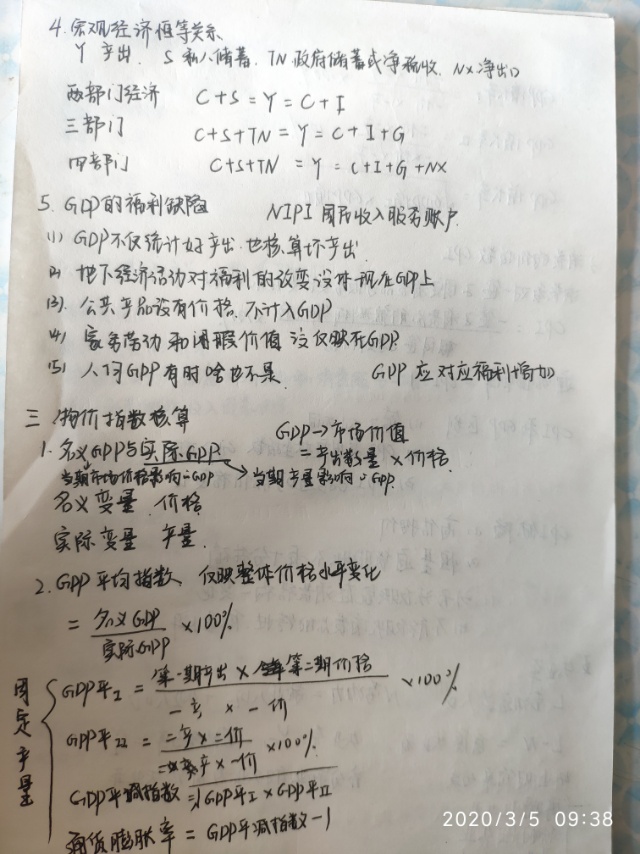 4. 宏观经济恒等关系
Y 产出. S 私人储蓄. TN 政府储蓄或净税收. NX 净出口
两部门经济 C+S = Y = C+I
三部门 C+S+TN = Y = C+I+G
四部门 C+S+TN = Y = C+I+G+NX
5. GDP的福利缺陷 NIPI 国民收入服务账户.
(1) GDP不仅统计好产出. 也核算坏产出.
(2) 地下经济活动对福利的改变没体现在GDP上
(3). 公共产品没有价格. 不计入GDP
(4) 家务劳动和闲暇价值没反映在GDP
(5) 人均GDP有时啥也不是. GDP 应对应福利增加
三 物价指数核算
GDP→市场价值
1. 名义GDP与实际GDP. = 产出数量 × 价格.
当期市场价格影响的GDP 当期产量影响的GDP
名义变量 价格
实际变量 产量.
2. GDP平均指数. 反映整体价格水平变化
= 名义GDP/实际GDP ×100%
固定产量
GDP平I = 第一期产出 × 第二期价格/一产 × 一价 ×100%
GDP平II = 二产×二价/二产×一价 ×100%
GDP平减指数 = √GDP平I × GDP平II
通货膨胀率 = GDP平减指数-1
2020/3/5 09:38